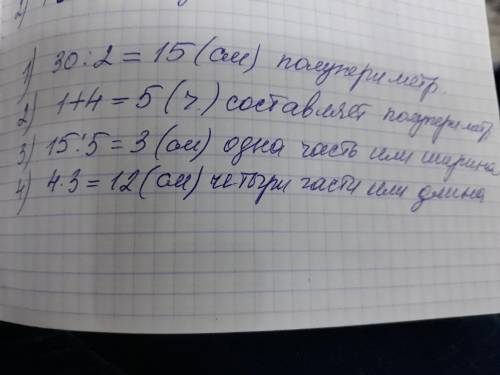 1) 30:2=15 (см) полупериметр.
2) 1+4=5 (ч) составляет полупериметр
3) 15:5=3 (см) одна часть или ширина
4) 4·3=12 (см) четыри части или длина